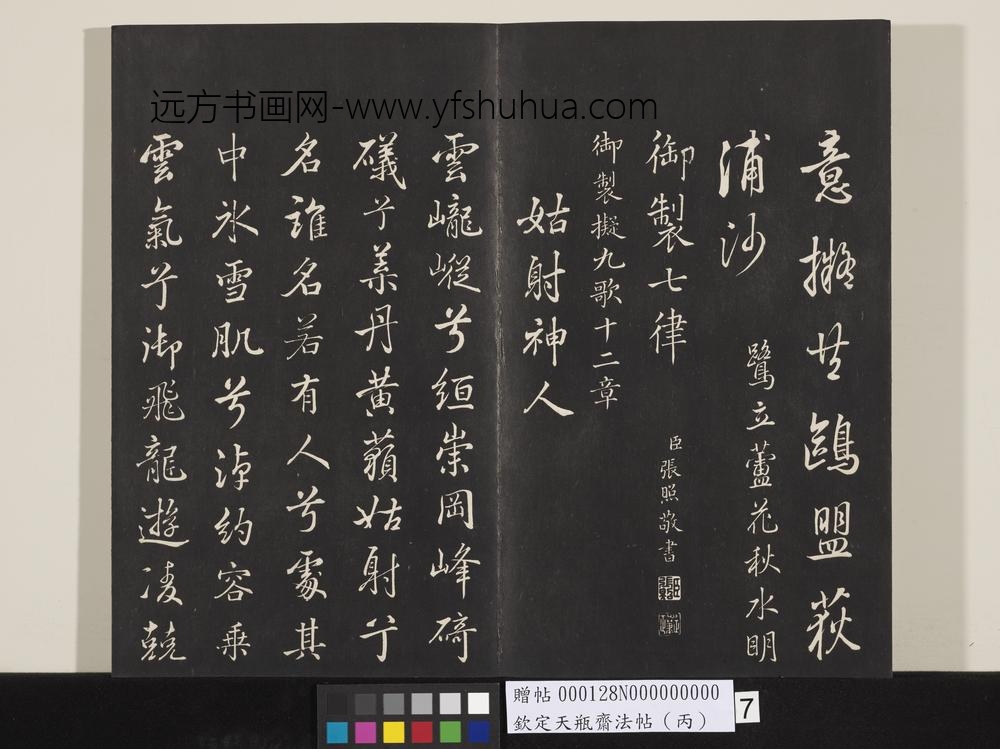 远方书画网-www.yfshuhua.com
意擬共鷗盟荻
浦沙
鷺立蘆花秋水明
御製七律
臣張照敬書
御製擬九歌十二章
姑射神人
雲巃嵷兮絙崇岡峰碕
礒兮葉丹黃蘋姑射兮
名誰名若有人兮處其
中氷雪肌兮淖約容乘
雲氣兮御飛龍遊凌兢
贈帖 000128N000000000
欽定天瓶齋法帖（丙）
7